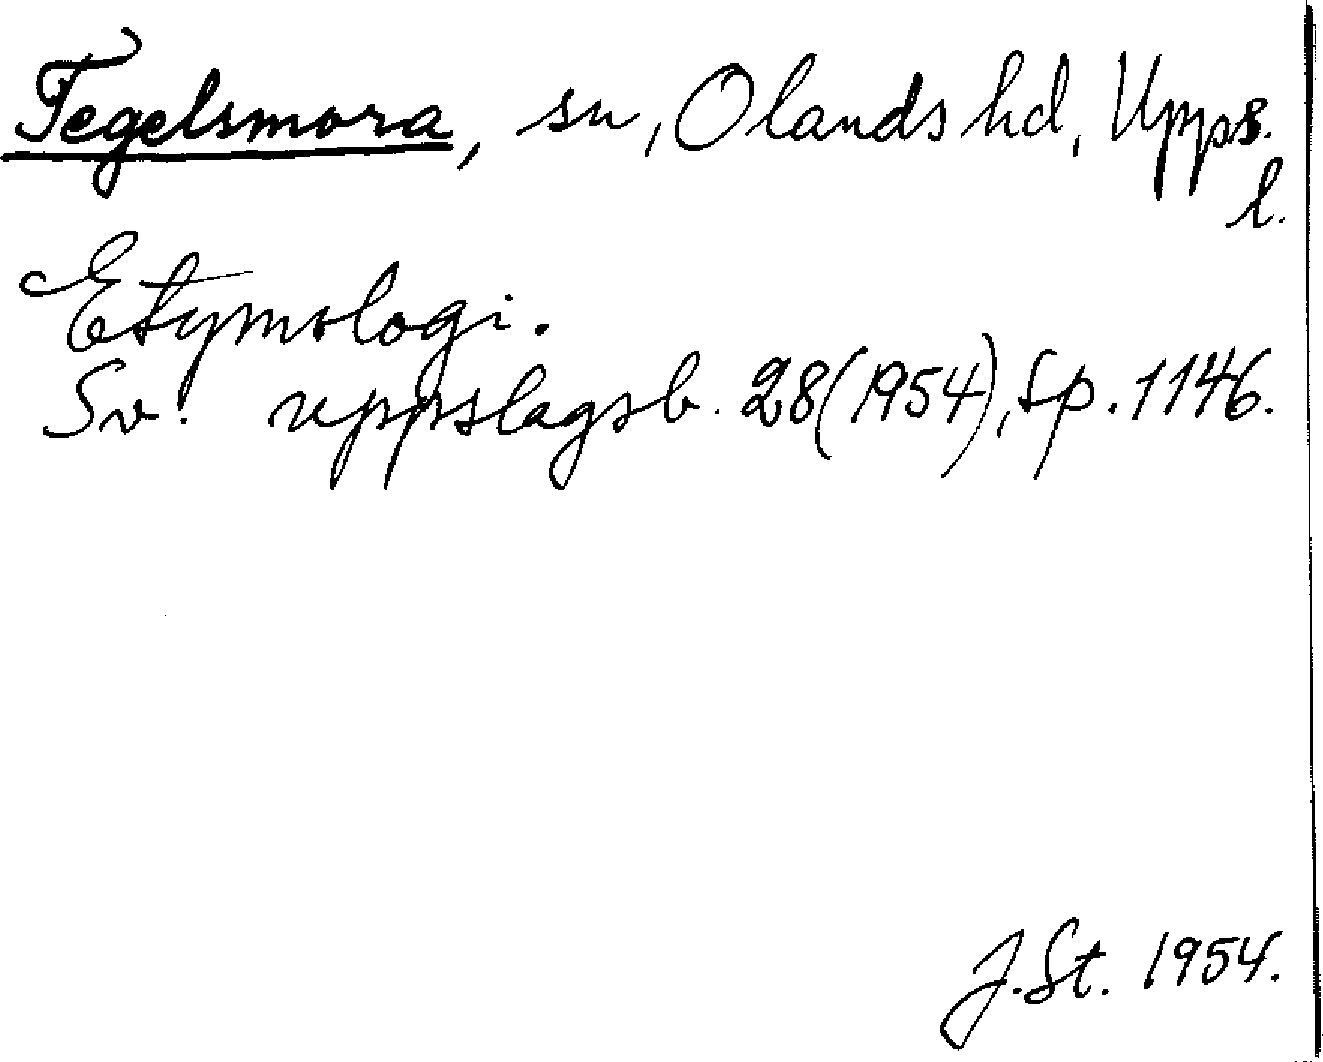 Tegelsmora, sn, Olands hd, Upps.
l.
Etymologi.
Sv. uppslagsb. 28(1954), sp. 1146.
J. St. 1954.